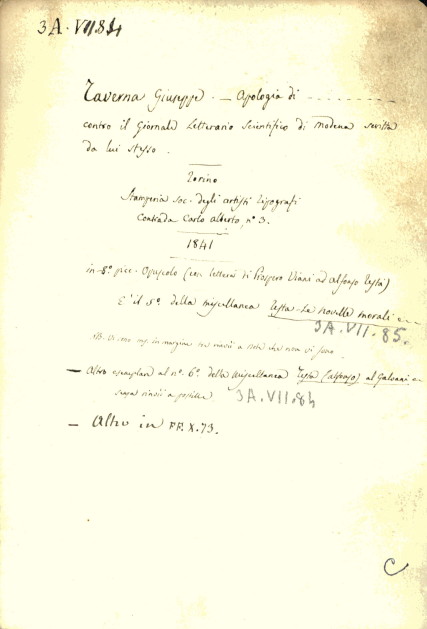 3A.VII.84
Taverna Giuseppe. — Apologia di - - - - - - - -
contro il Giornale Letterario Scientifico di Modena scritta
da lui stesso.
Torino
Stamperia Soc. degli artisti tipografi
Contrada Carlo Alberto, nº 3.
1841
in-8º picc. Opuscolo (con lettera di Prospero Viani ad Alfonso Testa)
E' il 5º della miscellanea Testa - Le novelle morali e
3A.VII-85.
NB. in margine rinvii a note che non vi sono.
— Altro esemplare al nº 6º della miscellanea Testa (Alfonso) al Galvani e
senza rinvii a postille. 3A.VII.84
— Altro in FF.X.73.
C